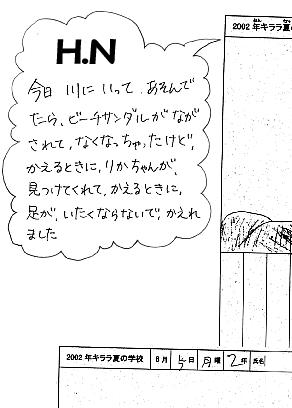 H.N
今日 川に いって、あそんで
たら、ビーチサンダルが なが
されて、なくなっちゃったけど、
かえるときに、りかちゃんが、
見つけてくれて、かえるときに、
足が、いたくならないで、かえれ
ました
2002 年キララ夏の
2002 年キララ夏の学校 8月 5日 月曜 2年 氏名